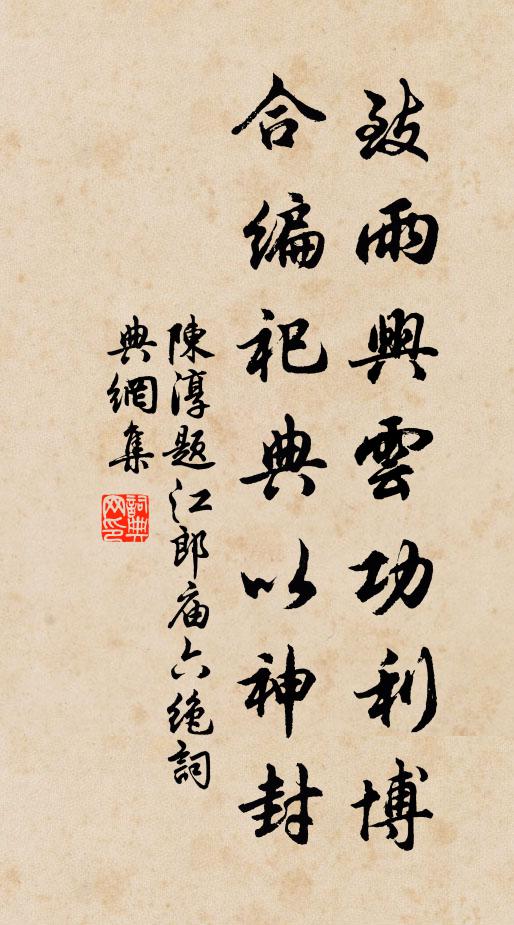 致雨興雲功利博
合編祀典以神封
陳淳題江郎庙六絶詞
典網集
詞典网印